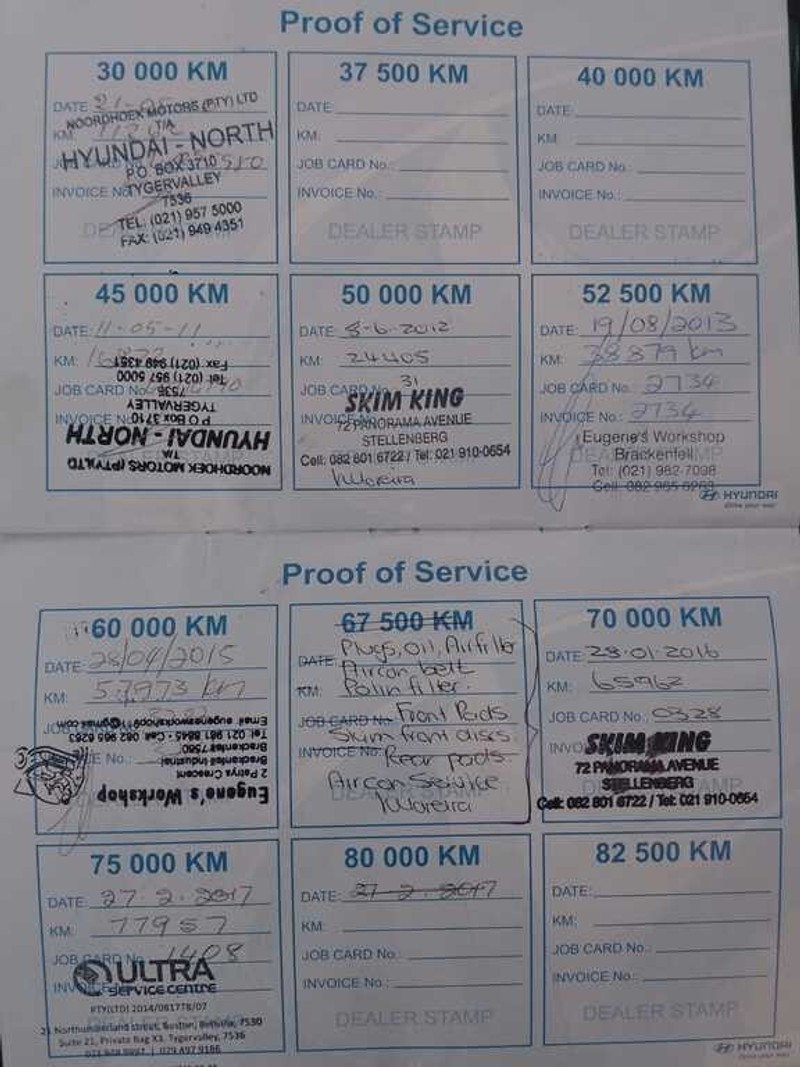 Proof of Service
30 000 KM
DATE
NOORDHOEK MOTORS (PTY) LTD
T/A
KM
HYUNDAI - NORTH
P.O. BOX 3710
INVOICE No
TYGERVALLEY
7536
TEL: (021) 957 5000
FAX: (021) 949 4351
37 500 KM
DATE:
KM:
JOB CARD No.:
INVOICE No.:
DEALER STAMP
40 000 KM
DATE:
KM:
JOB CARD No.:
INVOICE No.:
DEALER STAMP
45 000 KM
DATE: 11-05-11
KM:
Fax: (021) 949 4351
Tel: (021) 957 5000
JOB CARD No
7536
TYGERVALLEY
INVOICE No
P O Box 3710
HYUNDAI - NORTH
T/A
NOORDHOEK MOTORS (PTY) LTD
50 000 KM
DATE: 8-6-2012
KM: 24405
JOB CARD No. 31
SKIM KING
INVOICE
72 PANORAMA AVENUE
STELLENBERG
Cell: 082 801 6722 / Tel: 021 910-0654
52 500 KM
DATE: 19/08/2013
KM: 38 879 km
JOB CARD No.: 2734
INVOICE No.: 2734
Eugene's Workshop
Brackenfell
Tel: (021) 982-7098
Cell: 082 965 6263
HYUNDAI
Drive your way
Proof of Service
60 000 KM
DATE: 28/04/2015
KM: 57973 km
Email eugenesworkshop911@gmail.com
Tel: 021 981 5845 - Cell: 082 965 6263
Brackenfell 7560
No.:
Brackenfell Industrial
2 Petrya Crescent
Eugene's Workshop
67 500 KM
Plugs, oil, Airfilter
DATE:
Aircon belt
KM:
Pollin filter.
JOB CARD No. Front Pads
Skim front discs.
INVOICE No. Rear pads.
Aircon Service
70 000 KM
DATE: 28-01-2016
KM: 65962
JOB CARD No.: 0328
INVO
SKIM KING
72 PANORAMA AVENUE
STELLENBERG
Cell: 082 801 6722 / Tel: 021 910-0654
75 000 KM
DATE: 27.2.2017
KM: 77957
JOB CARD No. 1408
ULTRA
SERVICE CENTRE
PTY(LTD) 2014/061778/07
Northumberland street, Boston, Bellville, 7530
Suite 21, Private Bag X3, Tygervalley, 7536
80 000 KM
DATE: 27-2-2017
KM:
JOB CARD No.:
INVOICE No.:
DEALER STAMP
82 500 KM
DATE:
KM:
JOB CARD No.:
INVOICE No.:
DEALER STAMP
HYUNDAI
Drive your way